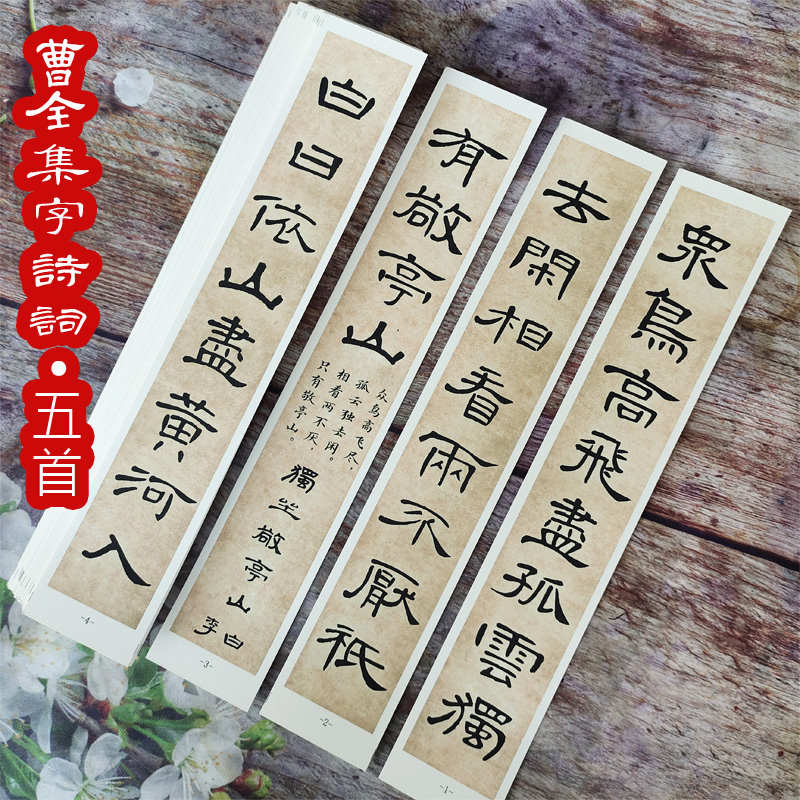 曹全集字詩詞•五首
眾鳥高飛盡孤雲獨
-1-
去閑相看兩不厭祇
-2-
有敬亭山
众鸟高飞尽，
孤云独去闲。
相看两不厌，
只有敬亭山。
獨坐敬亭山
李白
-3-
白日依山盡黃河入
-4-